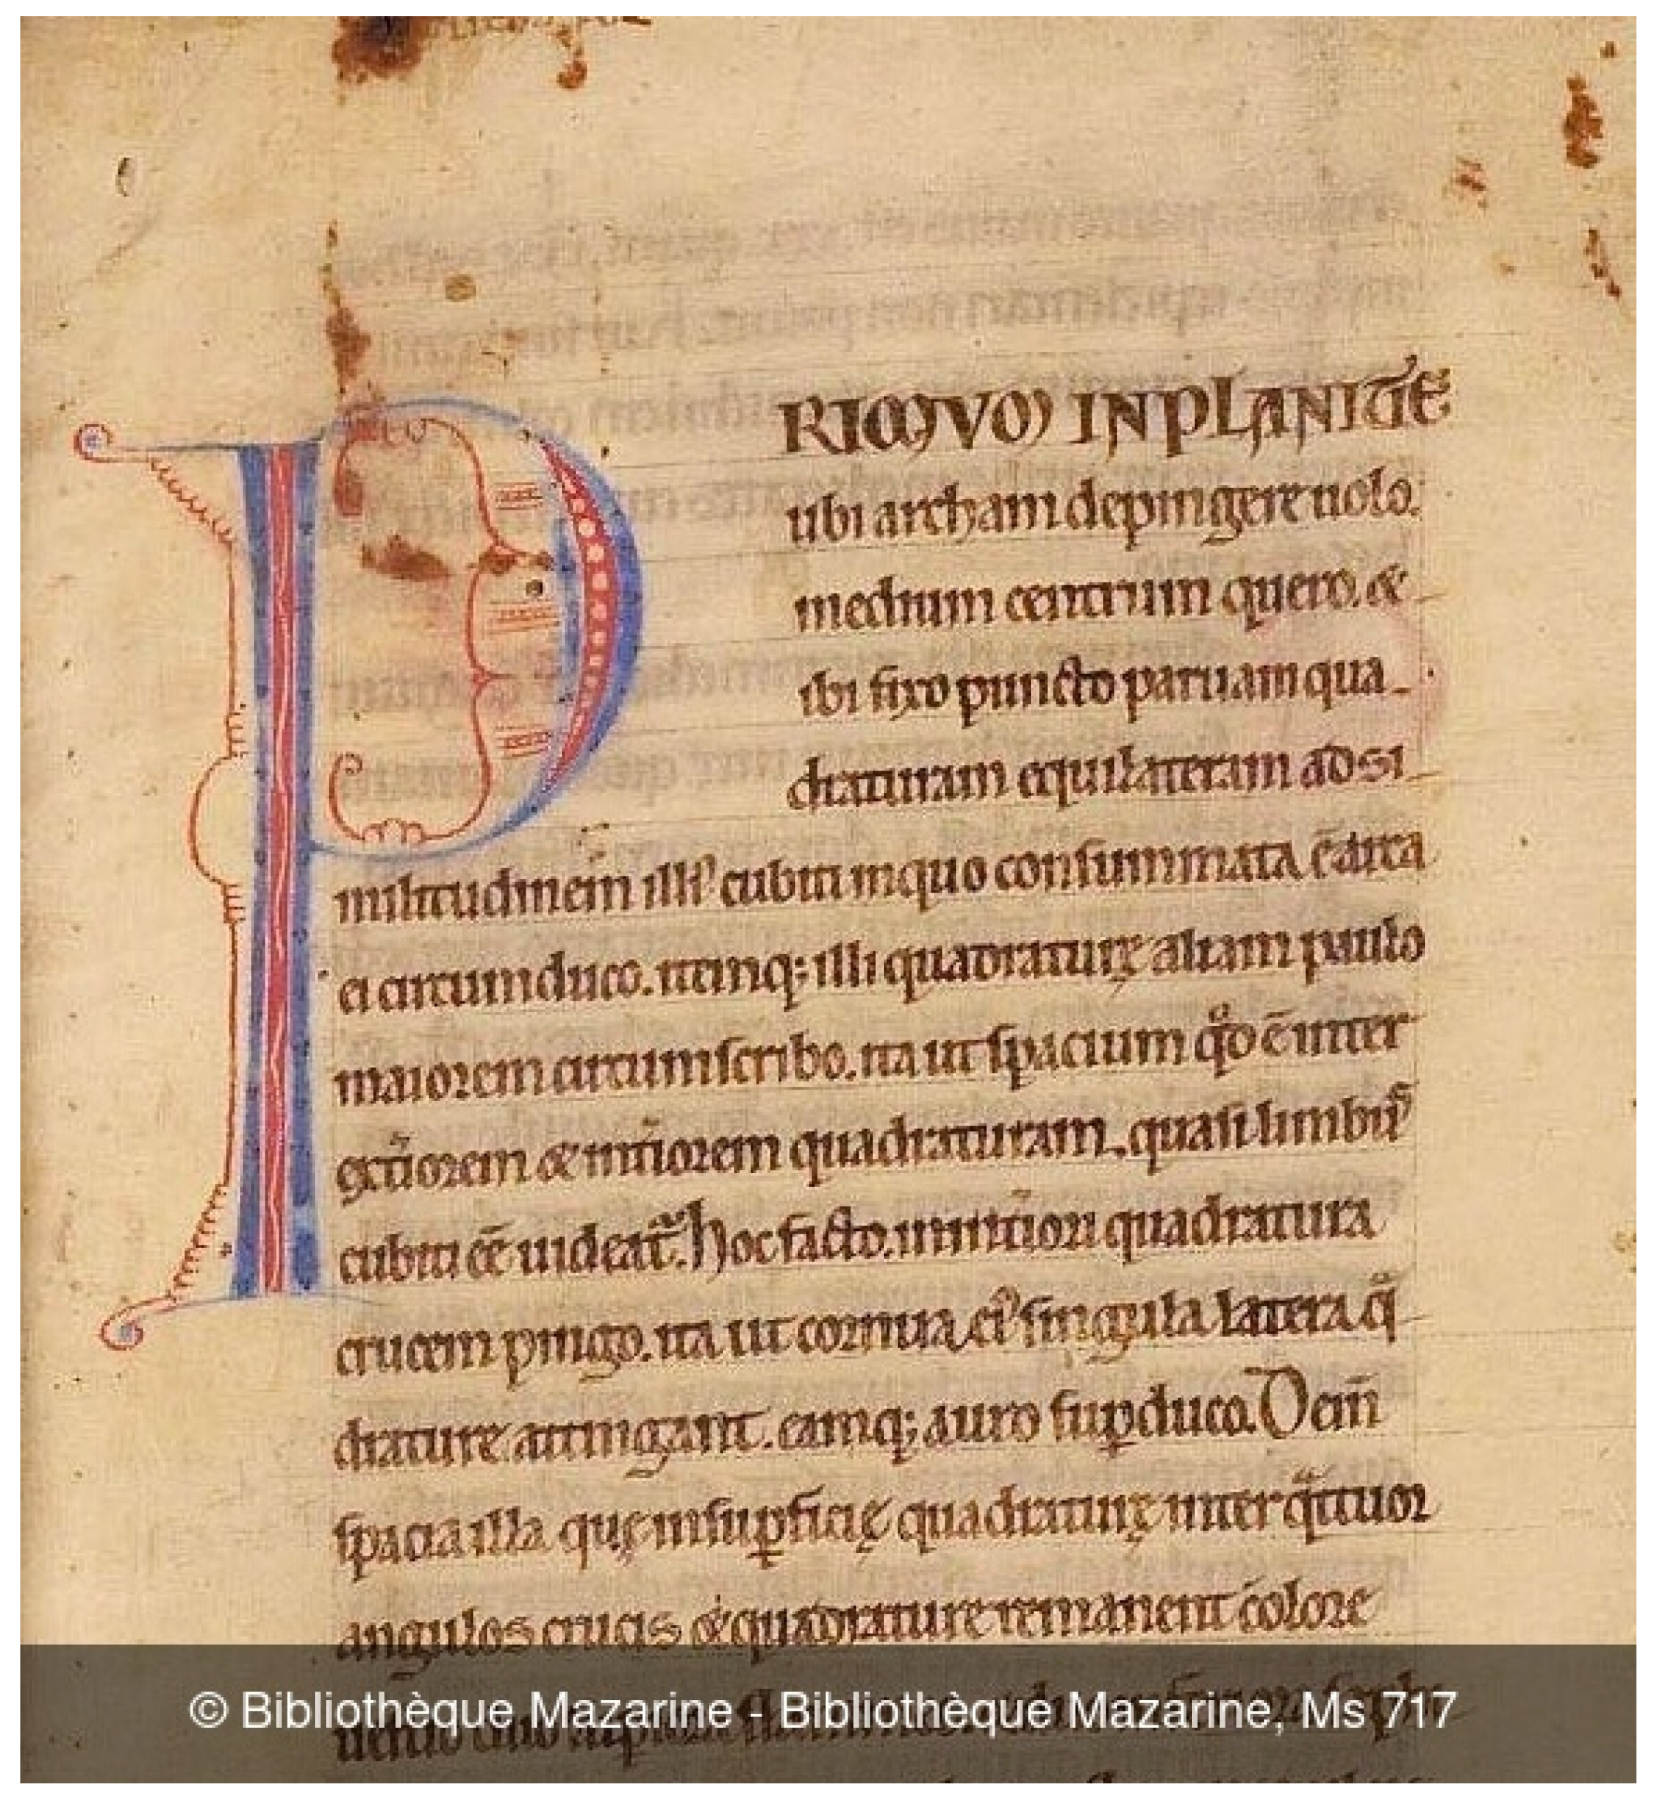 PRIMVM IN PLANITIE
ubi archam depingere uolo.
medium centrum quero. &
ibi fixo puncto paruam qua-
draturam equilateram ad si
militudinem illiꝰ cubiti in quo consummata ē arca
ei circumduco. itemq; illi quadraturę aliam paulo
maiorem circumscribo. ita ut spacium qͦd ē inter
exťiorem & inťiorem quadraturam. quasi limbuꝰ
cubiti eē uideat᷑. hoc facto. in inťiori quadratura
crucem pingo. ita ut cornua eiꝰ singula latera q̄
drature attingant. eamq; auro suꝑduco. Dein̄
spacia illa que̜ in suꝑficie̜ quadraturę inter qᷓttuor
angulos crucis & quadrature remanent colore
© Bibliothèque Mazarine - Bibliothèque Mazarine, Ms 717